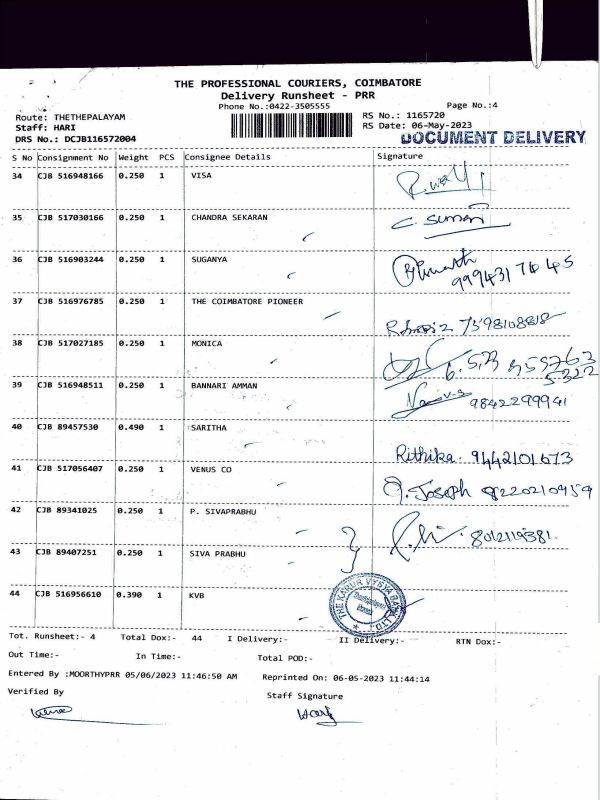 THE PROFESSIONAL COURIERS, COIMBATORE
Delivery Runsheet - PRR
Phone No.:0422-3505555
Page No.:4
Route: THETHEPALAYAM
RS No.: 1165720
Staff: HARI
RS Date: 06-May-2023
DRS No.: DCJB116572004
DOCUMENT DELIVERY
S No Consignment No Weight PCS Consignee Details Signature
34 CJB 516948166 0.250 1 VISA
35 CJB 517030166 0.250 1 CHANDRA SEKARAN C. Suman
36 CJB 516903244 0.250 1 SUGANYA
37 CJB 516976785 0.250 1 THE COIMBATORE PIONEER
38 CJB 517027185 0.250 1 MONICA
39 CJB 516948511 0.250 1 BANNARI AMMAN 9842299941
40 CJB 89457530 0.490 1 SARITHA Rithika. 9442101673
41 CJB 517056407 0.250 1 VENUS CO J. Joseph 8220210959
42 CJB 89341025 0.250 1 P. SIVAPRABHU
43 CJB 89407251 0.250 1 SIVA PRABHU
44 CJB 516956610 0.390 1 KVB THE KARUR VYSYA BANK LTD.
Tot. Runsheet:- 4 Total Dox:- 44 I Delivery:- II Delivery:- RTN Dox:-
Out Time:- In Time:- Total POD:-
Entered By :MOORTHYPRR 05/06/2023 11:46:50 AM Reprinted On: 06-05-2023 11:44:14
Verified By Staff Signature